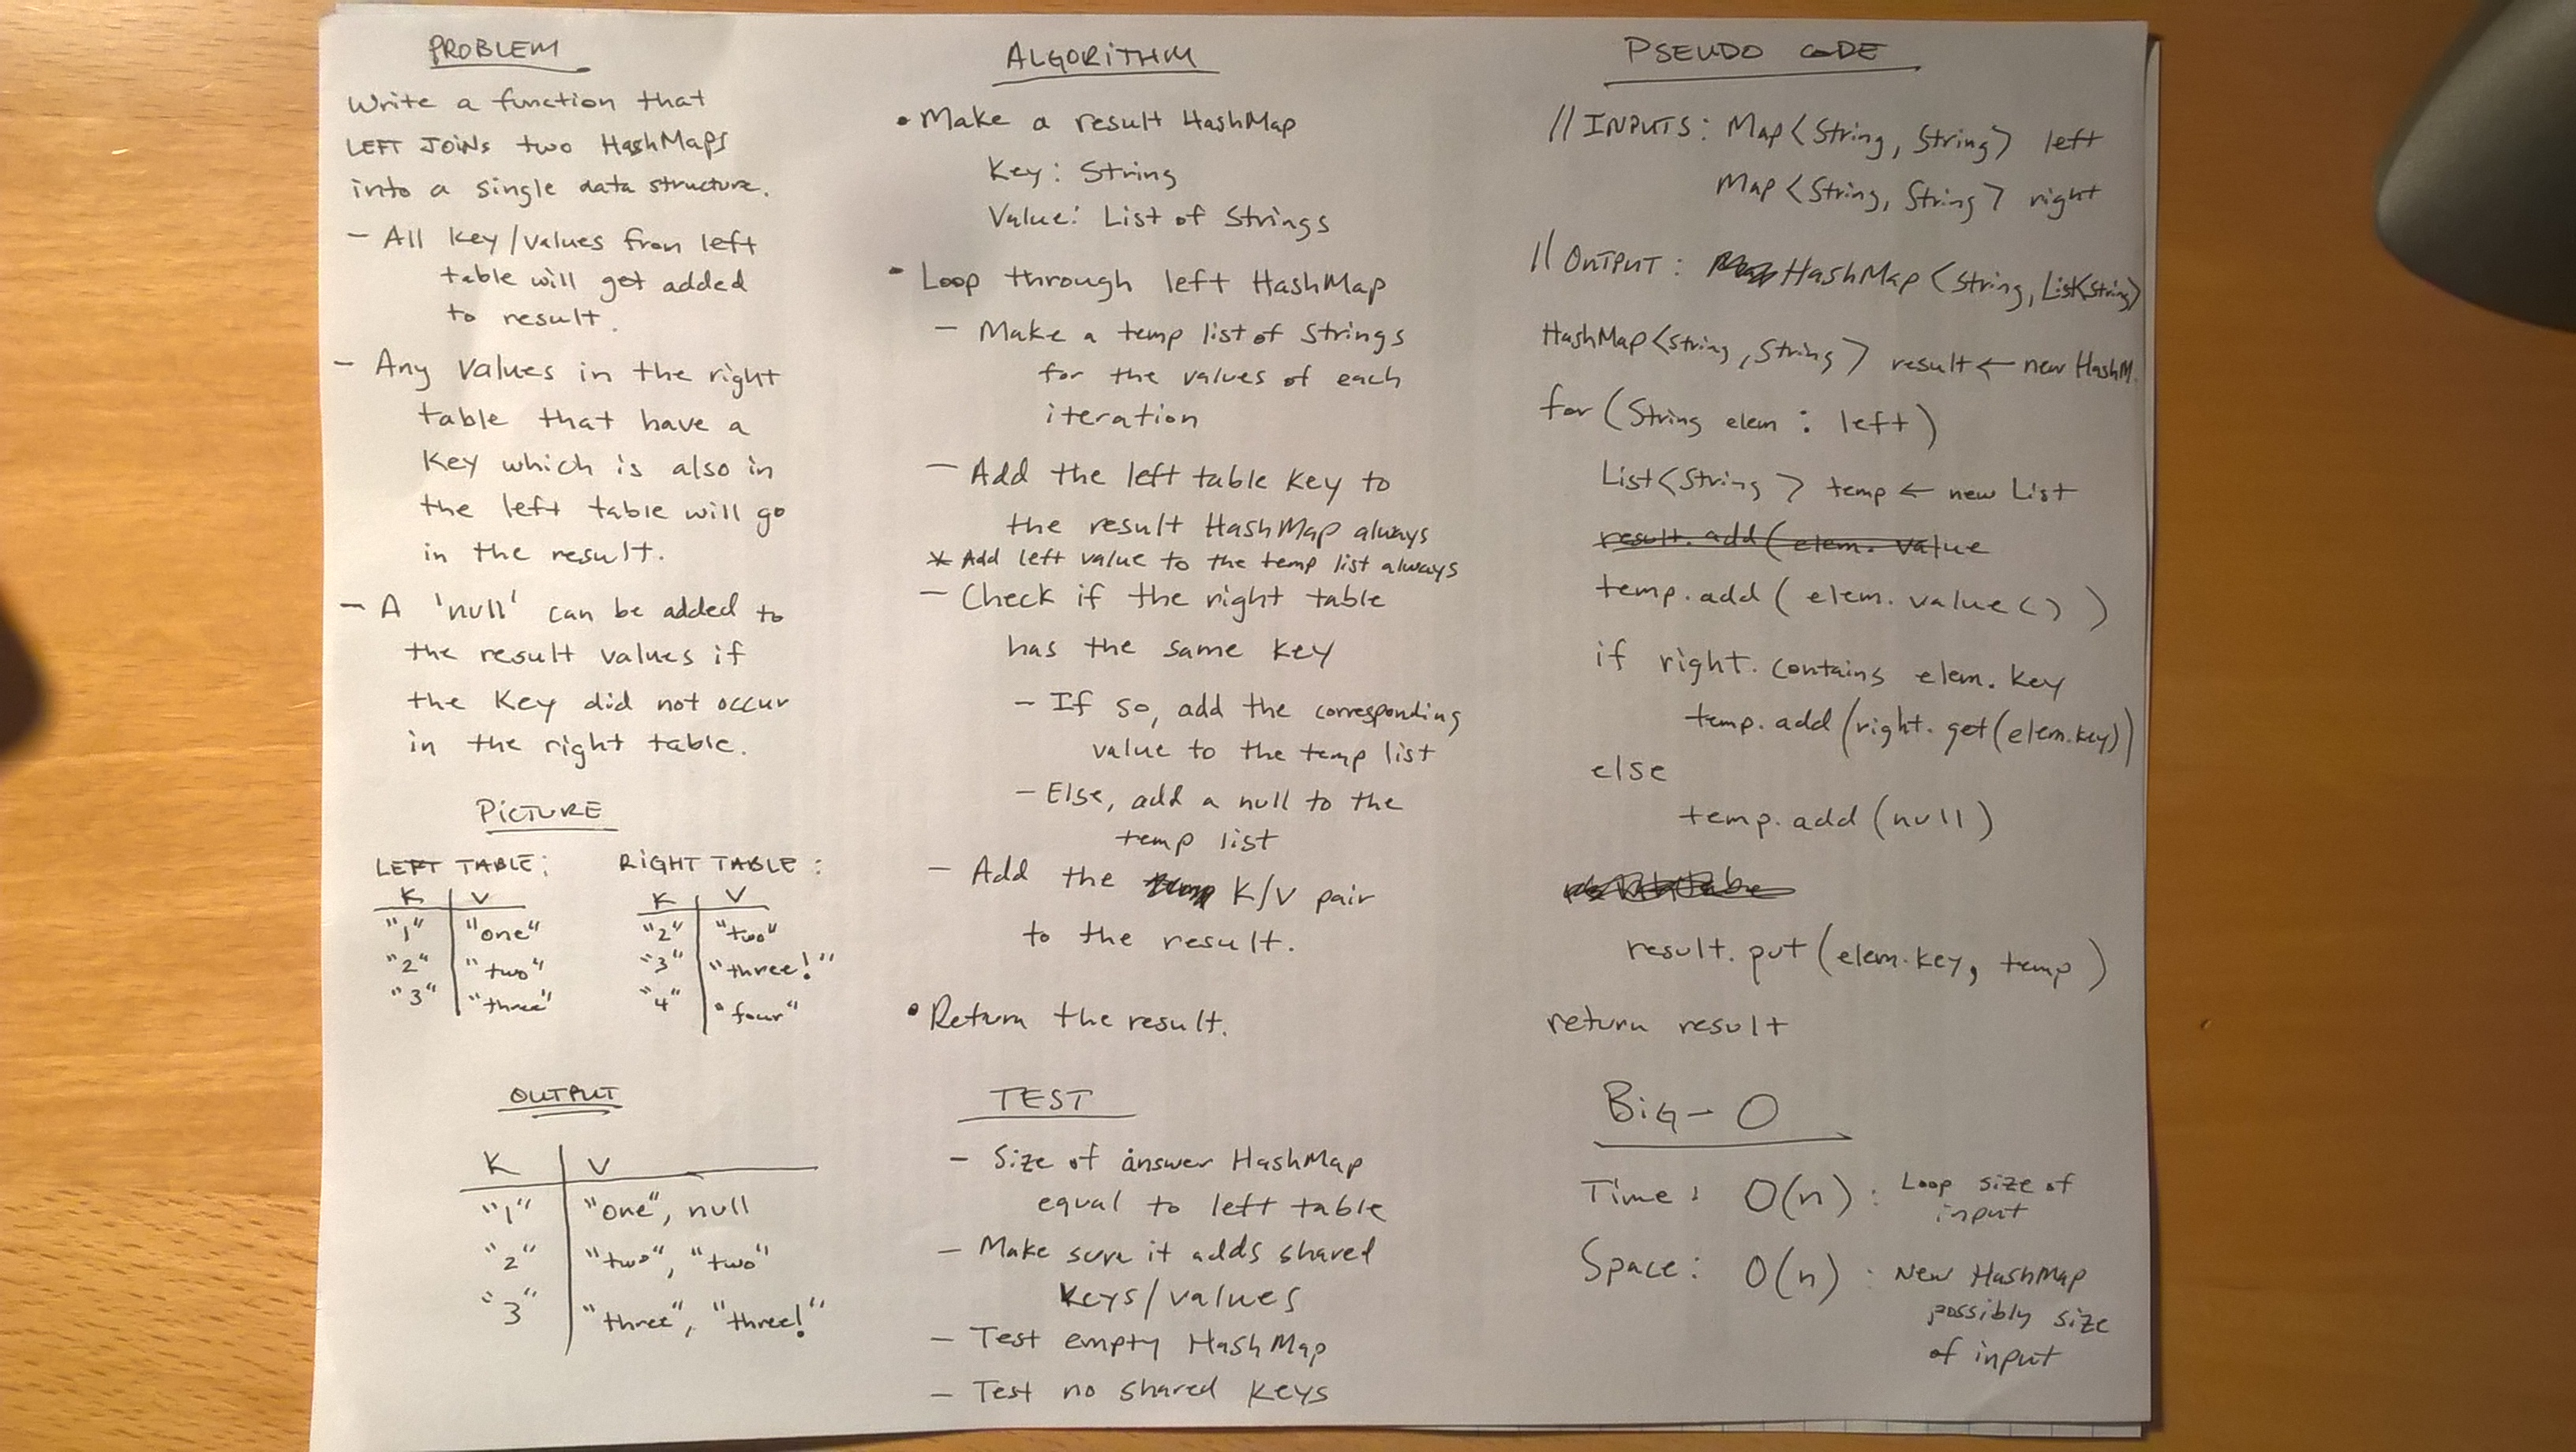 PROBLEM
Write a function that
LEFT JOINs two HashMaps
into a single data structure.
- All key/values from left
table will get added
to result.
- Any values in the right
table that have a
key which is also in
the left table will go
in the result.
- A 'null' can be added to
the result values if
the key did not occur
in the right table.
PICTURE
LEFT TABLE: RIGHT TABLE:
K V K V
"1" "one" "2" "two"
"2" "two" "3" "three!"
"3" "three" "4" "four"
OUTPUT
K V
"1" "one", null
"2" "two", "two"
"3" "three", "three!"
ALGORITHM
• Make a result HashMap
Key: String
Value: List of Strings
• Loop through left HashMap
- Make a temp list of Strings
for the values of each
iteration
- Add the left table key to
the result HashMap always
* Add left value to the temp list always
- Check if the right table
has the same key
- If so, add the corresponding
value to the temp list
- Else, add a null to the
temp list
- Add the temp K/V pair
to the result.
• Return the result.
TEST
- Size of answer HashMap
equal to left table
- Make sure it adds shared
keys/values
- Test empty HashMap
- Test no shared keys
PSEUDO CODE
// INPUTS: Map<String, String> left
Map<String, String> right
// OUTPUT: Map HashMap<String, List<String>
HashMap<String, String> result ← new HashM.
for (String elem : left)
List<String> temp ← new List
result.add(elem.value
temp.add(elem.value())
if right.contains elem.key
temp.add(right.get(elem.key))
else
temp.add(null)
result.put(elem.key, temp)
return result
BIG-O
Time: O(n): Loop size of
input
Space: O(n): New HashMap
possibly size
of input